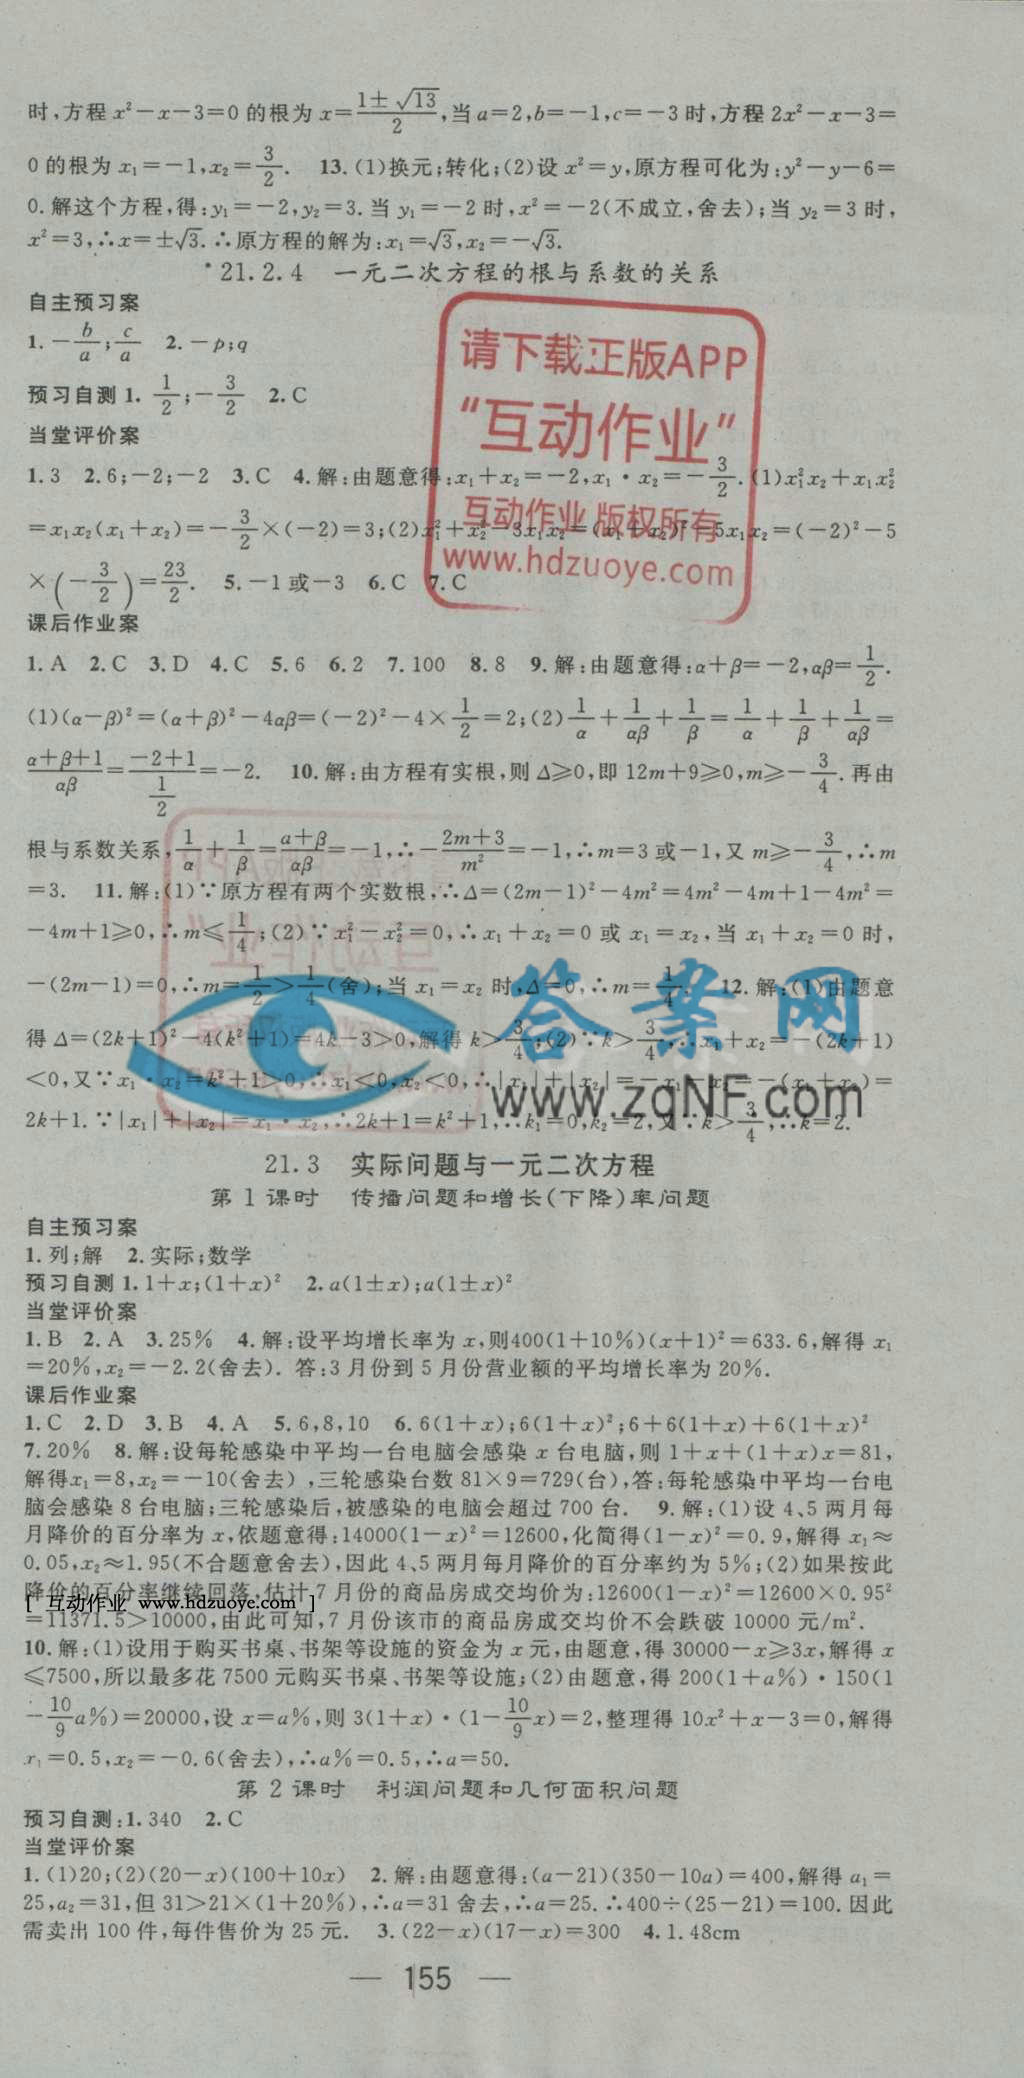 时,方程 x²－x－3=0 的根为 x=(1±√13)/2,当 a=2,b=－1,c=－3 时,方程 2x²－x－3=
0 的根为 x₁=－1,x₂=3/2. 13.(1)换元;转化;(2)设 x²=y,原方程可化为:y²－y－6=
0.解这个方程,得:y₁=－2,y₂=3.当 y₁=－2 时,x²=－2(不成立,舍去);当 y₂=3 时,
x²=3,∴x=±√3.∴原方程的解为:x₁=√3,x₂=－√3.
*21.2.4 一元二次方程的根与系数的关系
自主预习案
1.－b/a;c/a 2.－p;q
预习自测 1. 1/2;－3/2 2.C
当堂评价案
1.3 2.6;－2;－2 3.C 4.解:由题意得:x₁+x₂=－2,x₁·x₂=－3/2.(1)x₁²x₂+x₁x₂²
=x₁x₂(x₁+x₂)=－3/2×(－2)=3;(2)x₁²+x₂²－3x₁x₂=(x₁+x₂)²－5x₁x₂=(－2)²－5
×(－3/2)=23/2. 5.－1 或－3 6.C 7.C
课后作业案
1.A 2.C 3.D 4.C 5.6 6.2 7.100 8.8 9.解:由题意得:α+β=－2,αβ=1/2.
(1)(α－β)²=(α+β)²－4αβ=(－2)²－4×1/2=2;(2)1/α+1/αβ+1/β=1/α+1/β+1/αβ=
(α+β+1)/αβ=(－2+1)/(1/2)=－2. 10.解:由方程有实根,则 Δ≥0,即 12m+9≥0,m≥－3/4.再由
根与系数关系,1/α+1/β=(α+β)/αβ=－1,∴－(2m+3)/m²=－1,∴m=3 或－1,又 m≥－3/4,∴m
=3. 11.解:(1)∵原方程有两个实数根,∴Δ=(2m－1)²－4m²=4m²－4m+1－4m²=
－4m+1≥0,∴m≤1/4;(2)∵x₁²－x₂²=0,∴x₁+x₂=0 或 x₁=x₂,当 x₁+x₂=0 时,
－(2m－1)=0,∴m=1/2>1/4(舍);当 x₁=x₂ 时,Δ=0,∴m=1/4. 12.解:(1)由题意
得 Δ=(2k+1)²－4(k²+1)=4k－3>0,解得 k>3/4;(2)∵k>3/4,∴x₁+x₂=－(2k+1)
<0,又∵x₁·x₂=k²+1>0,∴x₁<0,x₂<0,∴|x₁|+|x₂|=－x₁－x₂=－(x₁+x₂)=
2k+1.∵|x₁|+|x₂|=x₁·x₂,∴2k+1=k²+1,∴k₁=0,k₂=2,又∵k>3/4,∴k=2.
21.3 实际问题与一元二次方程
第 1 课时 传播问题和增长(下降)率问题
自主预习案
1.列;解 2.实际;数学
预习自测 1.1+x;(1+x)² 2.a(1±x);a(1±x)²
当堂评价案
1.B 2.A 3.25% 4.解:设平均增长率为 x,则400(1+10%)(x+1)²=633.6,解得 x₁
=20%,x₂=－2.2(舍去). 答:3 月份到 5 月份营业额的平均增长率为 20%.
课后作业案
1.C 2.D 3.B 4.A 5.6,8,10 6.6(1+x);6(1+x)²;6+6(1+x)+6(1+x)²
7.20% 8.解:设每轮感染中平均一台电脑会感染 x 台电脑,则 1+x+(1+x)x=81,
解得x₁=8,x₂=－10(舍去),三轮感染台数 81×9=729(台),答:每轮感染中平均一台电
脑会感染 8 台电脑;三轮感染后,被感染的电脑会超过 700 台. 9.解:(1)设 4、5 两月每
月降价的百分率为 x,依题意得:14000(1－x)²=12600,化简得(1－x)²=0.9,解得 x₁≈
0.05,x₂≈1.95(不合题意舍去),因此 4、5 两月每月降价的百分率约为 5%;(2)如果按此
降价的百分率继续回落,估计 7 月份的商品房成交均价为:12600(1－x)²=12600×0.95²
[ 互动作业 www.hdzuoye.com ]
=11371.5>10000,由此可知,7 月份该市的商品房成交均价不会跌破 10000 元/m².
10.解:(1)设用于购买书桌、书架等设施的资金为 x 元,由题意,得 30000－x≥3x,解得 x
≤7500,所以最多花 7500 元购买书桌、书架等设施;(2)由题意,得 200(1+a%)·150(1
－10/9 a%)=20000,设 x=a%,则 3(1+x)·(1－10/9 x)=2,整理得 10x²+x－3=0,解得
x₁=0.5,x₂=－0.6(舍去),∴a%=0.5,∴a=50.
第 2 课时 利润问题和几何面积问题
预习自测:1.340 2.C
当堂评价案
1.(1)20;(2)(20－x)(100+10x) 2.解:由题意得:(a－21)(350－10a)=400,解得 a₁=
25,a₂=31,但 31>21×(1+20%),∴a=31 舍去,∴a=25.∴400÷(25－21)=100.因此
需卖出 100 件,每件售价为 25 元. 3.(22－x)(17－x)=300 4.1.48cm
— 155 —
请下载正版APP
“互动作业”
互动作业 版权所有
www.hdzuoye.com
答案网
www.zqNF.com